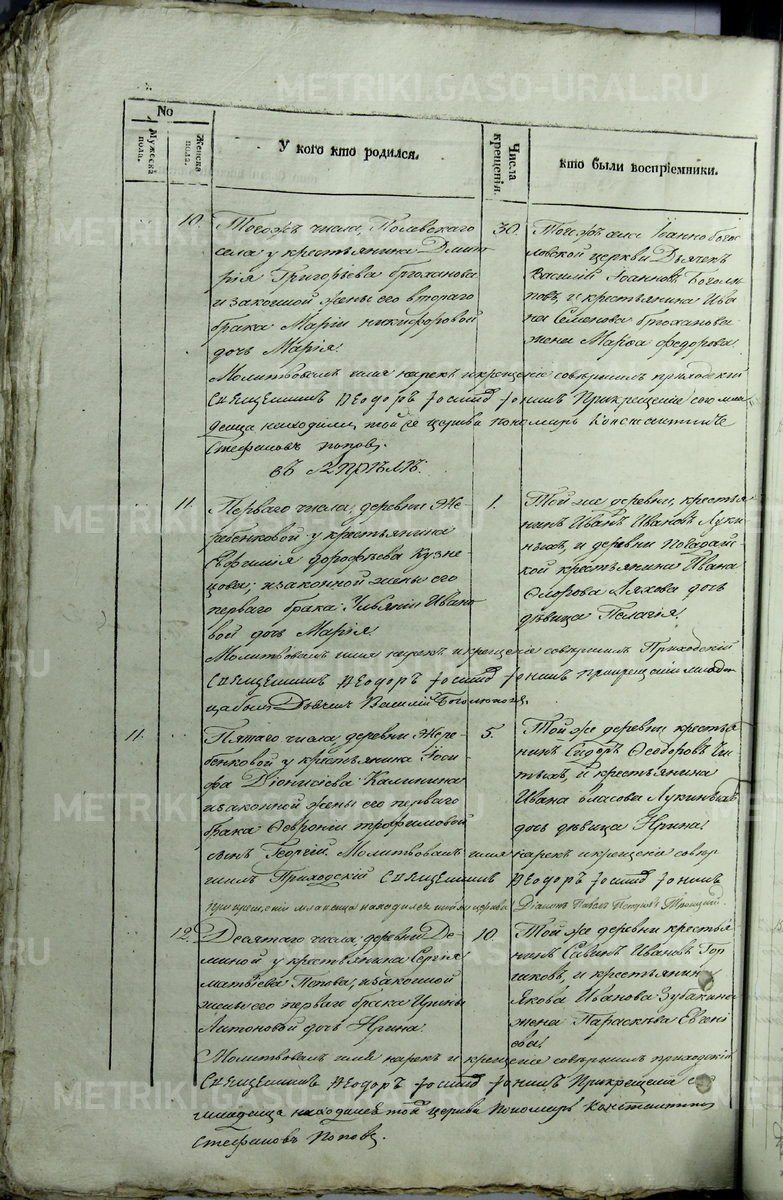 METRIKI.GASO-URAL.RU
No
Мужеска пола.
Женска пола.
У кого кто родился.
Числа крещенія.
кто были воспріемники.
10. Тогожъ числа, Полевскаго
села у крестьянина Дмит
рія Григорьева
и законной жены его втораго
брака Маріи Никифоровой
дочь Марія.
30. Тогожъ села Іоанно бого
словской церкви Дьячекъ
Василій Іоанновъ Боголю
повъ, и крестьянина Ива
на Семенова
жена Марѳа Федорова.
Молитвовалъ имя нарекъ и крещеніе совершилъ приходскій
Священникъ Ѳеодоръ При крещеніи сего мла
денца находился той же церкви пономарь Константинъ
Стефановъ Поповъ.
въ Апрѣлѣ.
11. Перваго числа, деревни Же
ребенковой у крестьянина
Евфимія Дорофѣева Кузне
цова, и законной жены его
перваго брака Ивано
вой дочь Марія.
1. Той же деревни, крестья
нинъ Иванъ Ивановъ Луки
ныхъ, и деревни
крестьянина Ивана
Ляхова дочь
дѣвица Пелагія.
Молитвовалъ имя нарекъ и крещеніе совершилъ Приходскій
Священникъ Ѳеодоръ при крещеніи младен
ца былъ Дьячекъ Василій Боголюповъ.
11. Пятаго числа, деревни Жере
бенковой у крестьянина Іоси
фа Діонисіева Калинина
и законной жены его перваго
брака Ѳевроніи Трофимовой
сынъ Георгій. Молитвовалъ имя нарекъ и крещеніе совер
5. Той же деревни крестья
нинъ Сидоръ Ѳеодоровъ
и крестьянина
Ивана Власова Лукиныхъ
дочь дѣвица Ирина.
шилъ Приходскій Священникъ Ѳеодоръ
при крещеніи младенца находился той же церкви Діаконъ Павелъ Петровъ Троицкій.
12. Десятаго числа, деревни Де
миной у крестьянина Сергія
Матвѣева Попова, и законной
жены его перваго брака Ирины
Антоновой дочь Ирина.
10. Той же деревни крестья
нинъ Савинъ Ивановъ Гор
шковъ, и крестьянина
Якова Иванова Зубакина
жена Параскѣва Евгені
ева.
Молитвовалъ имя нарекъ и крещеніе совершилъ приходскій
Священникъ Ѳеодоръ При крещеніи
младенца находился той церкви Пономарь Константинъ
Стефановъ Поповъ.